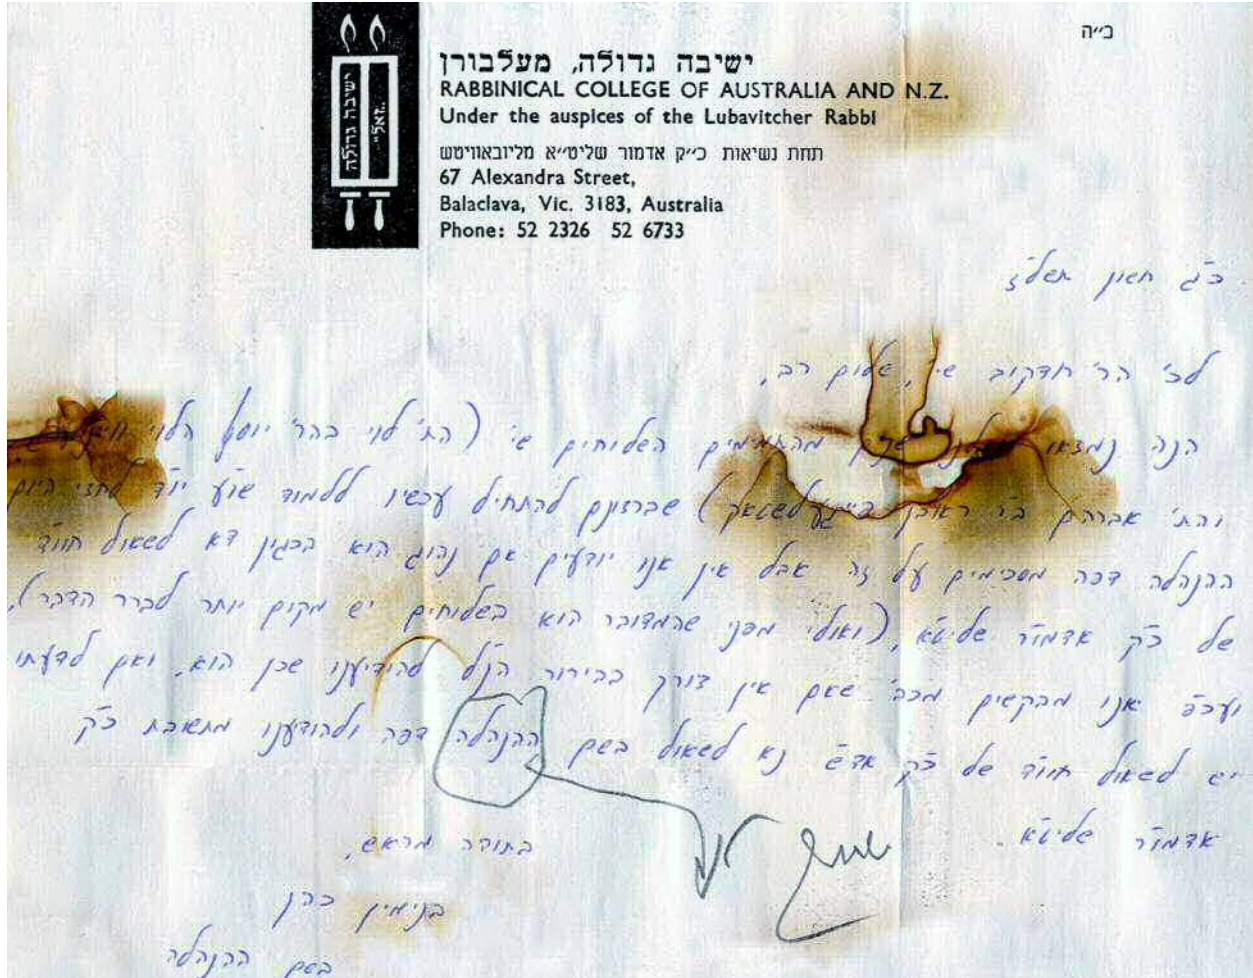 ב״ה
ישיבה גדולה, מעלבורן
RABBINICAL COLLEGE OF AUSTRALIA AND N.Z.
Under the auspices of the Lubavitcher Rabbi
תחת נשיאות כ״ק אדמור שליט״א מליובאוויטש
67 Alexandra Street,
Balaclava, Vic. 3183, Australia
Phone: 52 2326 52 6733
ישיבה גדולה
כ"ג חשון תשל"ז
לכ' הר' חדקוב שי', שלום רב,
הנה נמצאו מהתמימים השלוחים שי' (הת' לוי בהר' יוסף הלוי
והת' אברהם בר' ראובן) שברצונם להתחיל עכשיו ללמוד שו"ע יו"ד
ההנהלה דפה מסכימים על זה אבל אין אנו יודעים אם נהוג הוא בכגון דא לשאול חוו"ד
של כ"ק אדמו"ר שליט"א, (ואולי מפני שהמדובר הוא בשלוחים יש מקום יותר לברר הדבר),
ועכ"פ אנו מבקשים מכב' שאם אין צורך בבירור הנ"ל להודיענו שכן הוא, ואם לדעתו
יש לשאול חוו"ד של כ"ק אד"ש נא לשאול בשם ההנהלה דפה ולהודיענו מתשובת כ"ק
אדמו"ר שליט"א.
בתודה מראש,
בנימין כהן
בשם ההנהלה